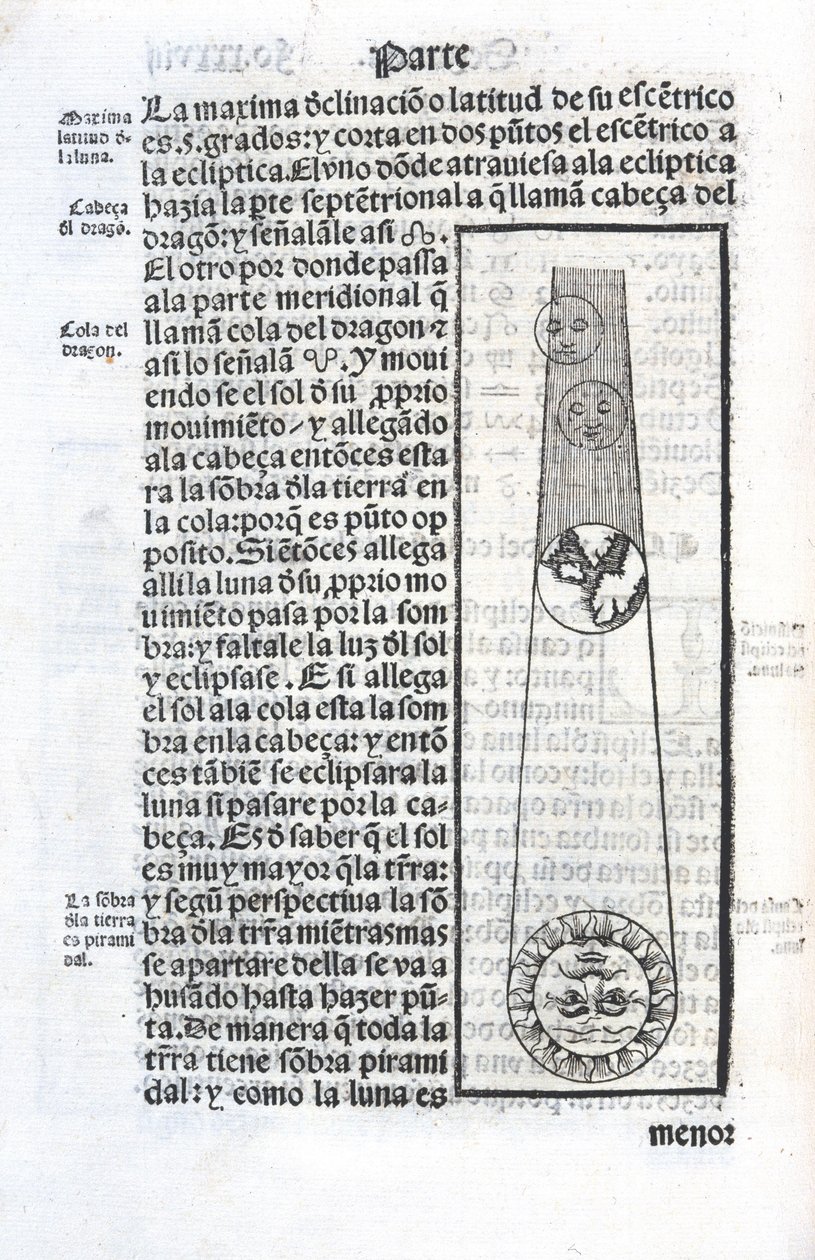 Parte
La maxima d̄clinaciō o latitud de su escētrico
es .5. grados: y corta en dos pūtos el escētrico a
la ecliptica. El vno dōde atrauiesa ala ecliptica
hazia la pte septētrional a q̄ llamā cabeça del
dragō: y señalāle asi ☊.
El otro por donde passa
ala parte meridional q̄
llamā cola del dragon ⁊
asi lo señalā ☋. Y moui
endo se el sol d̄ su pprio
mouimiēto / y allegādo
ala cabeça entōces esta
ra la sōbra d̄la tierra en
la cola: porq̄ es pūto op
posito. Siētōces allega
alli la luna d̄ su pprio mo
uimiēto pasa por la som
bra: y faltale la luz d̄l sol
y eclipsase. E si allega
el sol ala cola esta la som
bra enla cabeça: y entō
ces tābiē se eclipsara la
luna si pasare por la ca-
beça. Es d̄ saber q̄ el sol
es muy mayor q̄ la tr̄ra:
y segū perspectiua la sō
bra d̄la trr̄a miētras mas
se apartare della se va a
husādo hasta hazer pū-
ta. De manera q̄ toda la
tr̄ra tiene sōbra pirami
dal: y como la luna es
menor
Maxima
latitud d̄-
la luna.
Cabeça
d̄l dragō.
Cola del
dragon.
La sōbra
d̄la tierra
es pirami
dal.